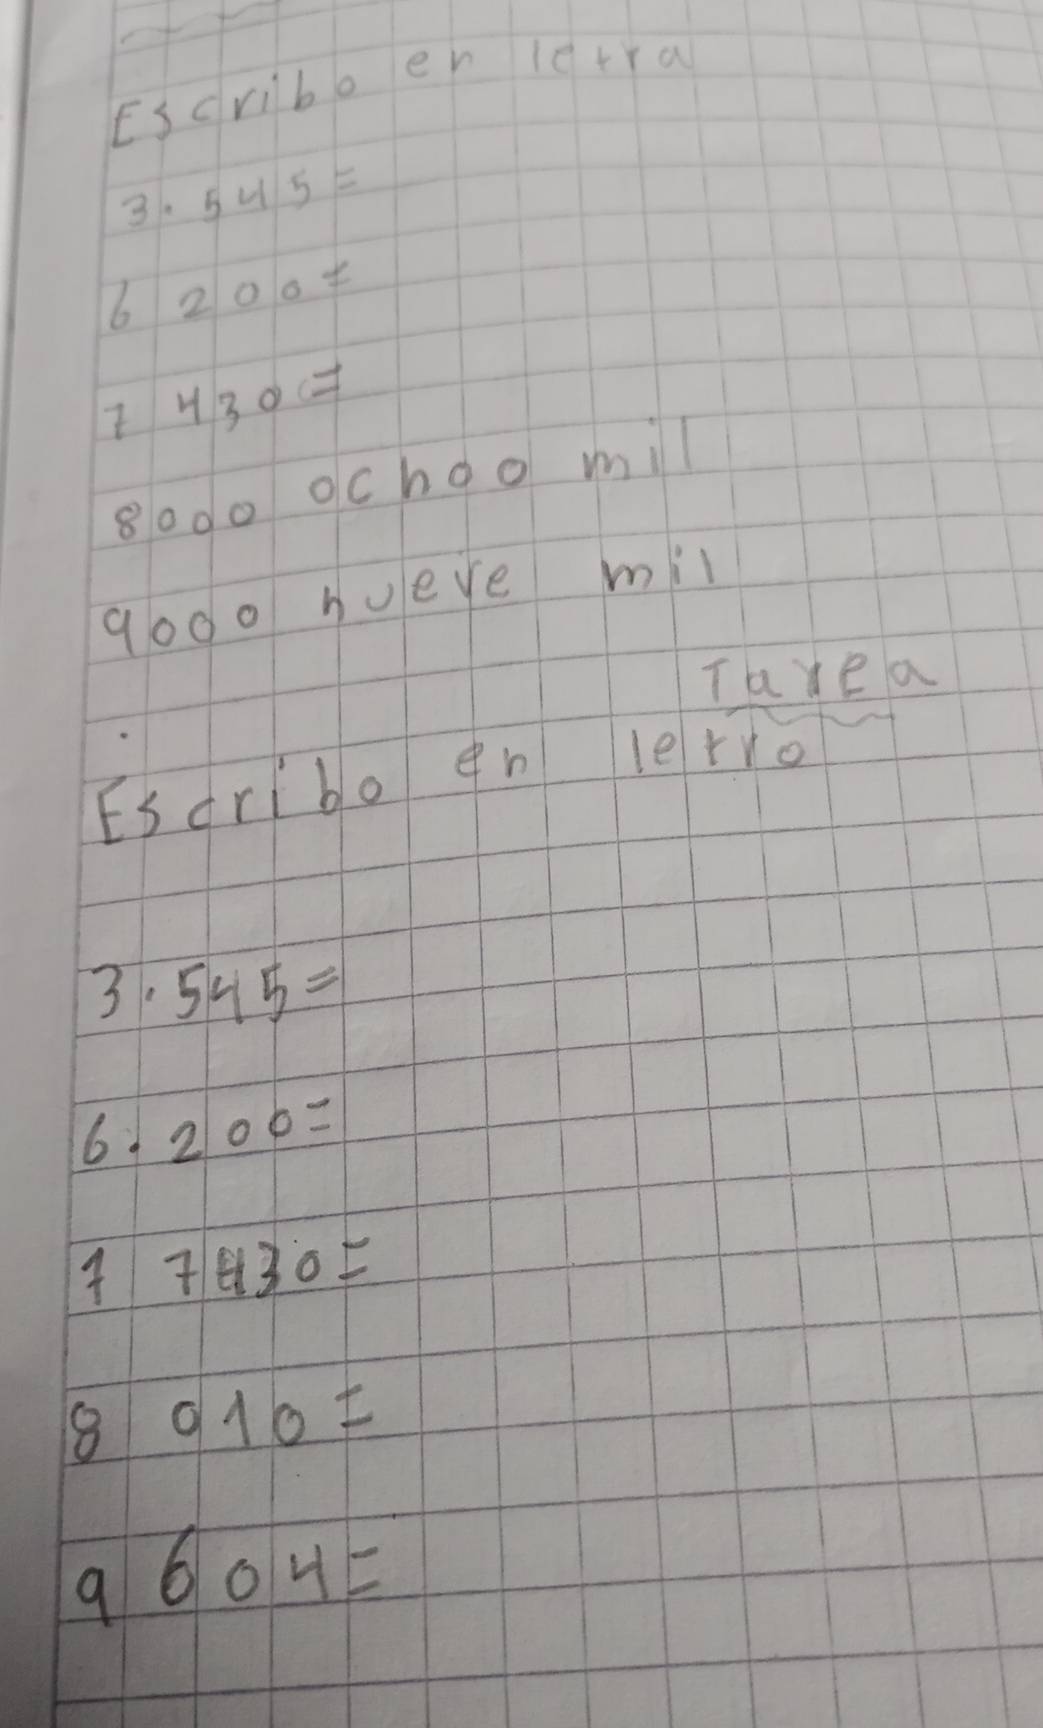 Escribo en letra
3.545=
6 200=
7 430=
8000 ochoo mil
9000 nueve mil
Tarea
Escribo en letro
3.545=
6.200=
1 7430=
8 010=
9 604=